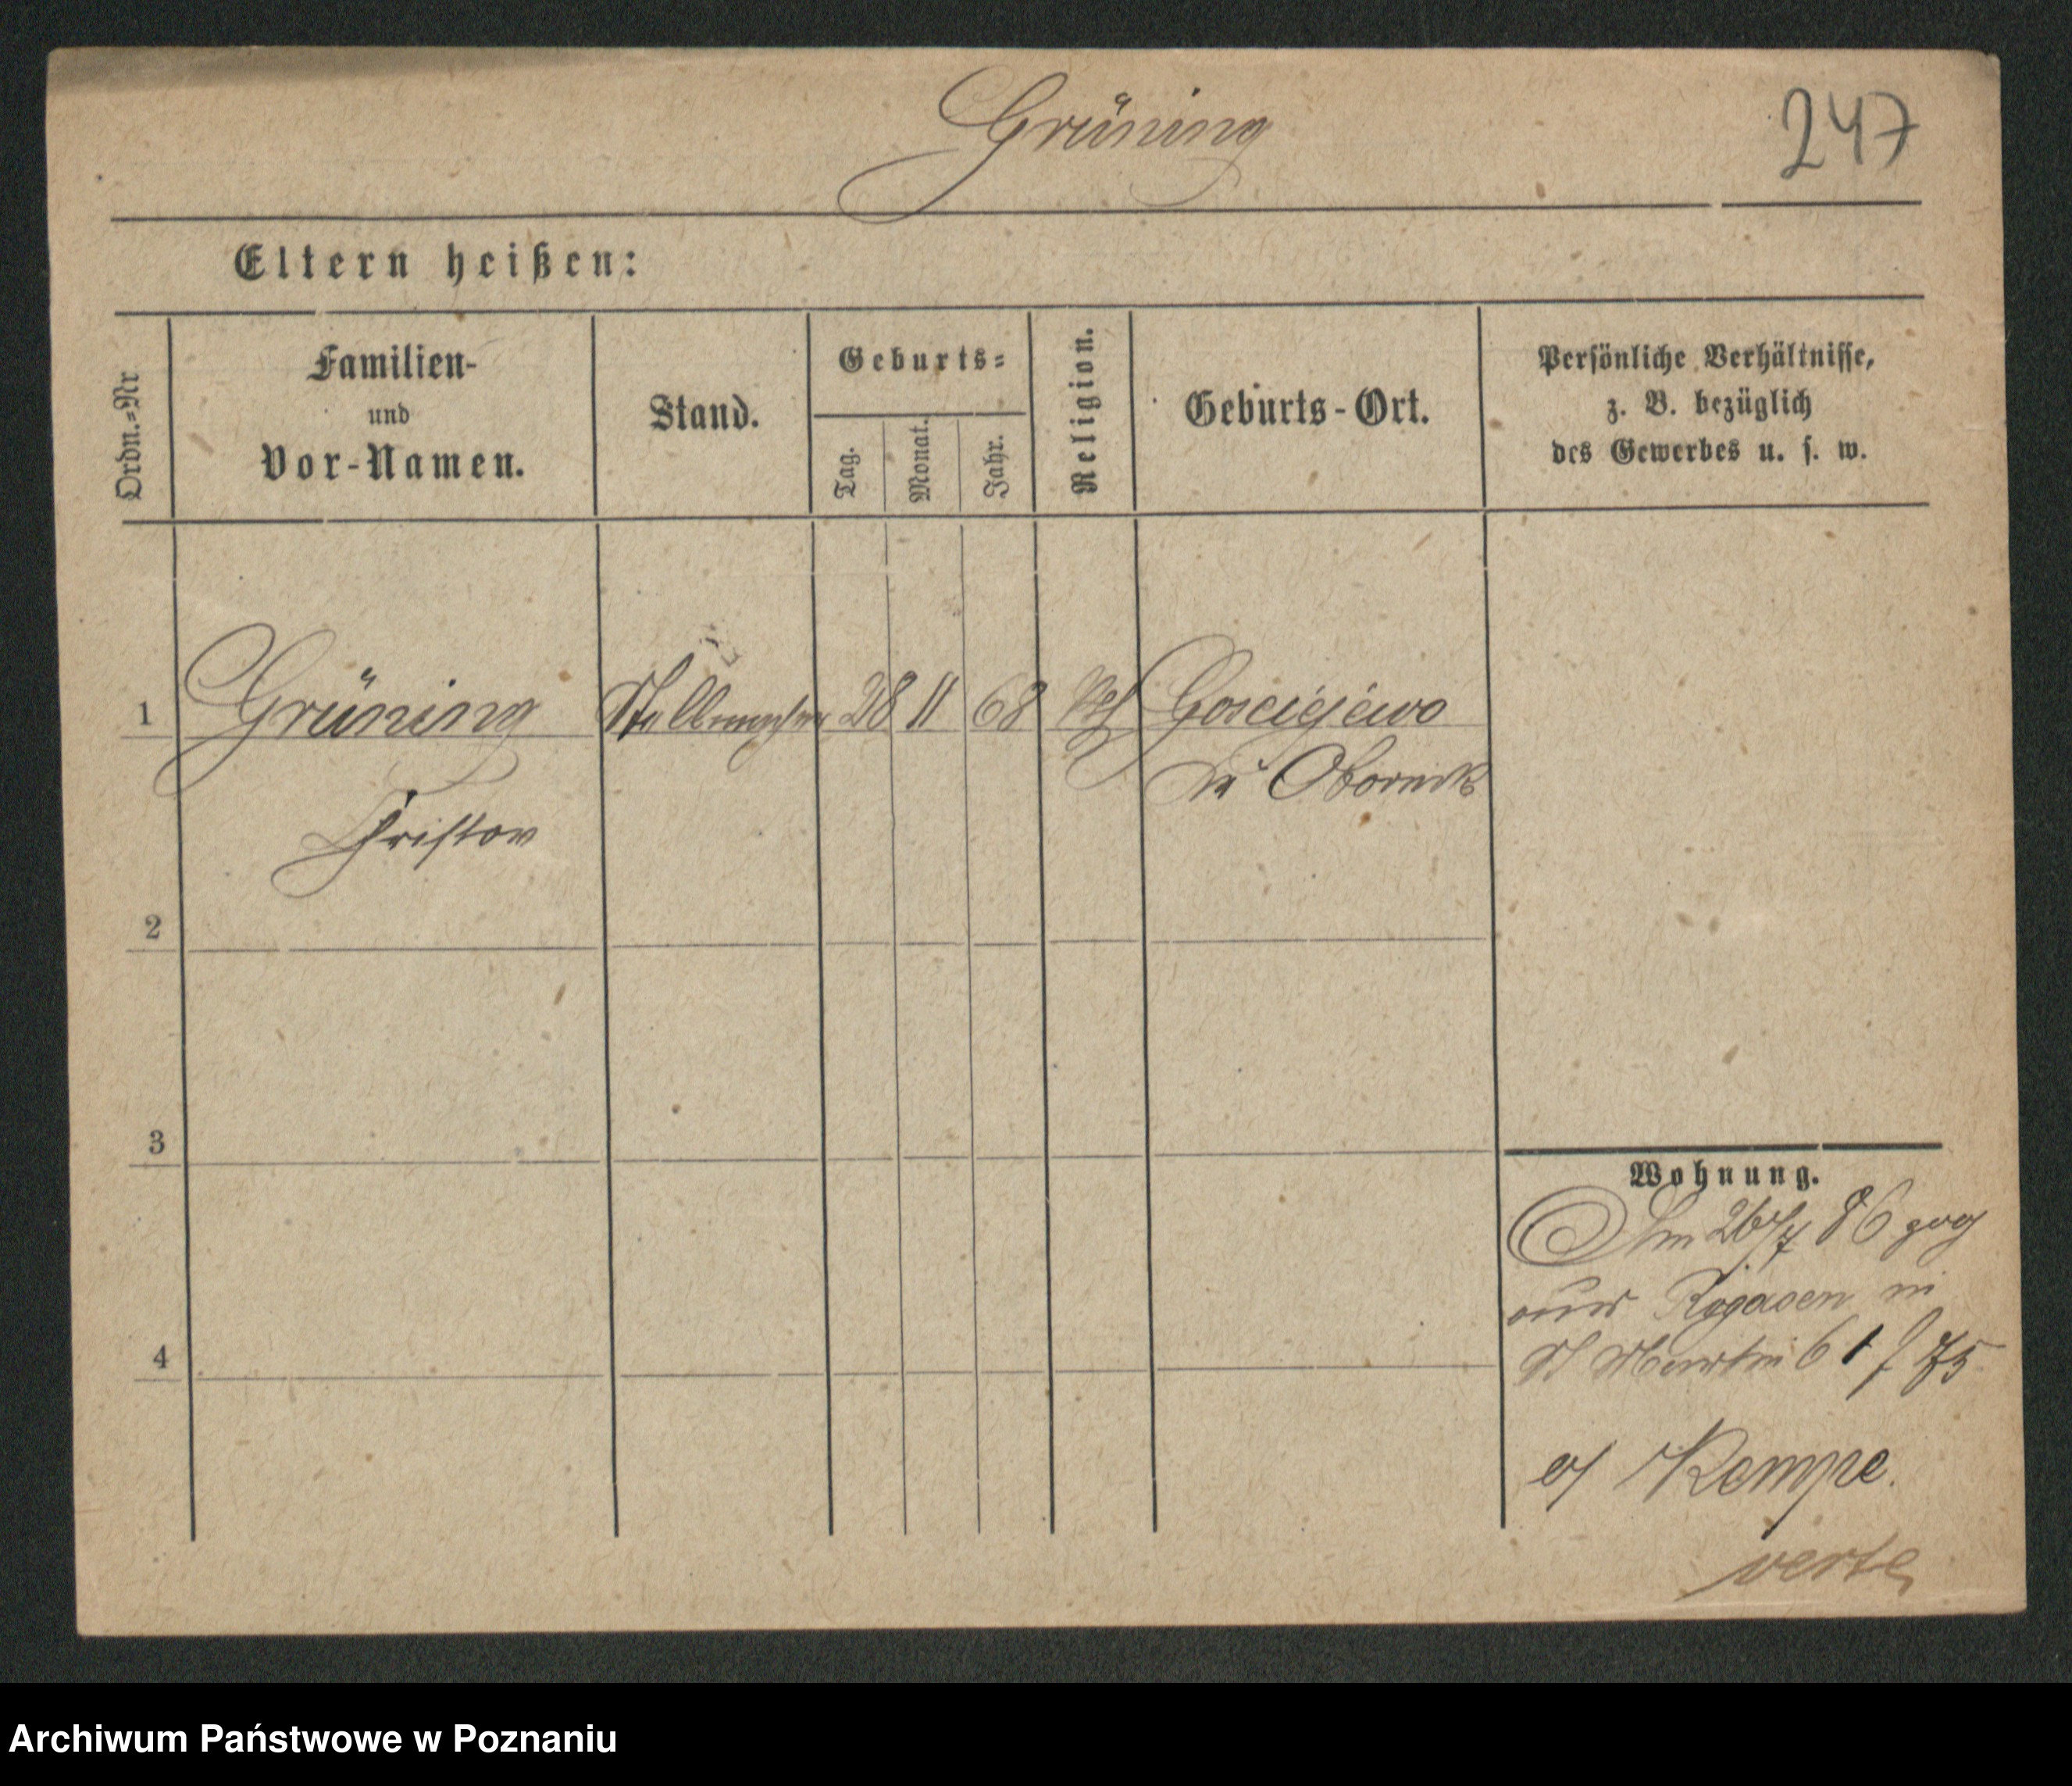 Grüning
247
Eltern heißen:
Ordn.=Nr
Familien-
und
Vor-Namen.
Stand.
Geburts=
Tag.
Monat.
Jahr.
Religion.
Geburts-Ort.
Persönliche Verhältnisse,
z. B. bezüglich
des Gewerbes u. s. w.
1 Grüning Stellmacher 28 11 68 Gosciejewo
Obornik
Christov
2
3
4
Wohnung.
Am 26/7 86 zog
aus Rogasen in
St Martin 61 / 75
Kempe.
verte
Archiwum Państwowe w Poznaniu